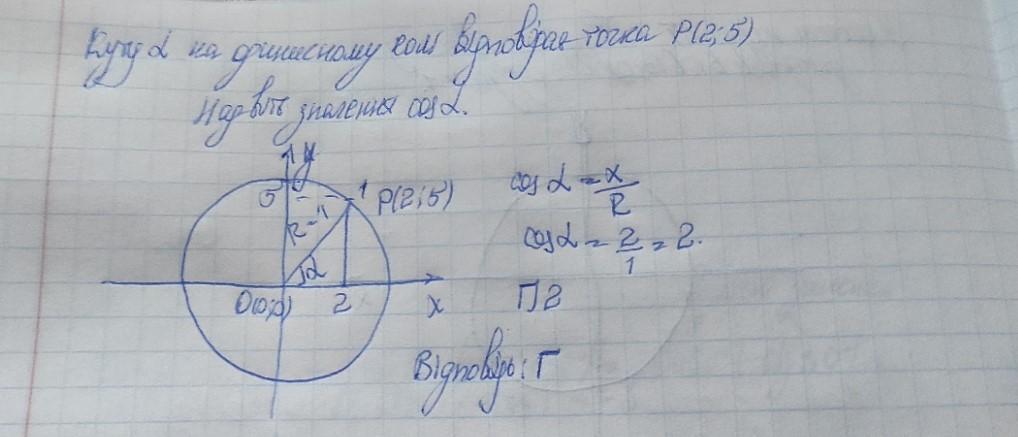 Куту α на одиничному колі відповідає точка P(2;5)
Назвіть значення cosα.
y
5
1
P(2;5)
R=1
α
O(0;0)
2
x
cosα = x/R
cosα = 2/1 = 2.
Г 2
Відповідь: Г